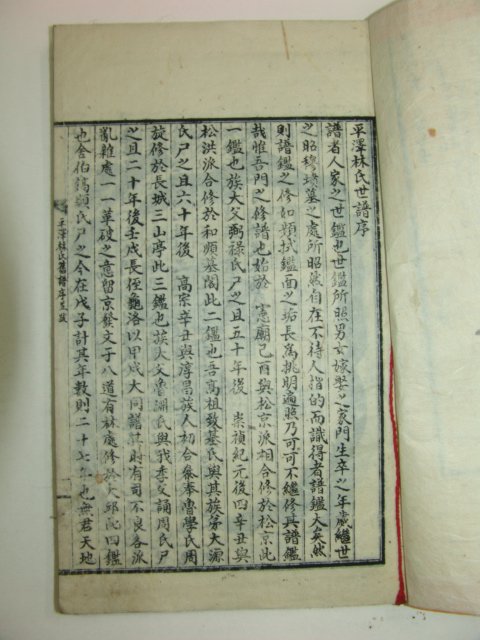 平澤林氏世譜序
譜者人家之世鑑也世鑑所照男女嫁娶之家門生卒之年歲繼世
之昭穆墳墓之處所昭然自在不待人指的而識得者譜鑑大矣然
則譜鑑之修如頻拭鑑面之垢長爲挑明遍照乃可可不繼修其譜鑑
哉惟吾門之修譜也始於 憲廟己酉與松京派相合修於松京此
一鑑也族大父弼祿氏尸之且五十年後 崇禎紀元後四辛丑與
松洪派合修於和順墓閣此二鑑也吾高祖致基氏與其族勞大源
氏尸之且六十年後 高宗辛丑與淳昌族人初合參奉魯學氏周
旋修於長城三山亭此三鑑也族大父魯淵氏與我季父誦周氏尸
之且二十年後壬戌長侄龜洛以甲戌大同譜時有司不良各派
亂雜處一一革破之意留京發文于八道有林處修於大邱此四鑑
也舍伯鎬顯氏尸之今在戊子計其年數則二十七年也無君天地
平澤林氏舊譜序至跋